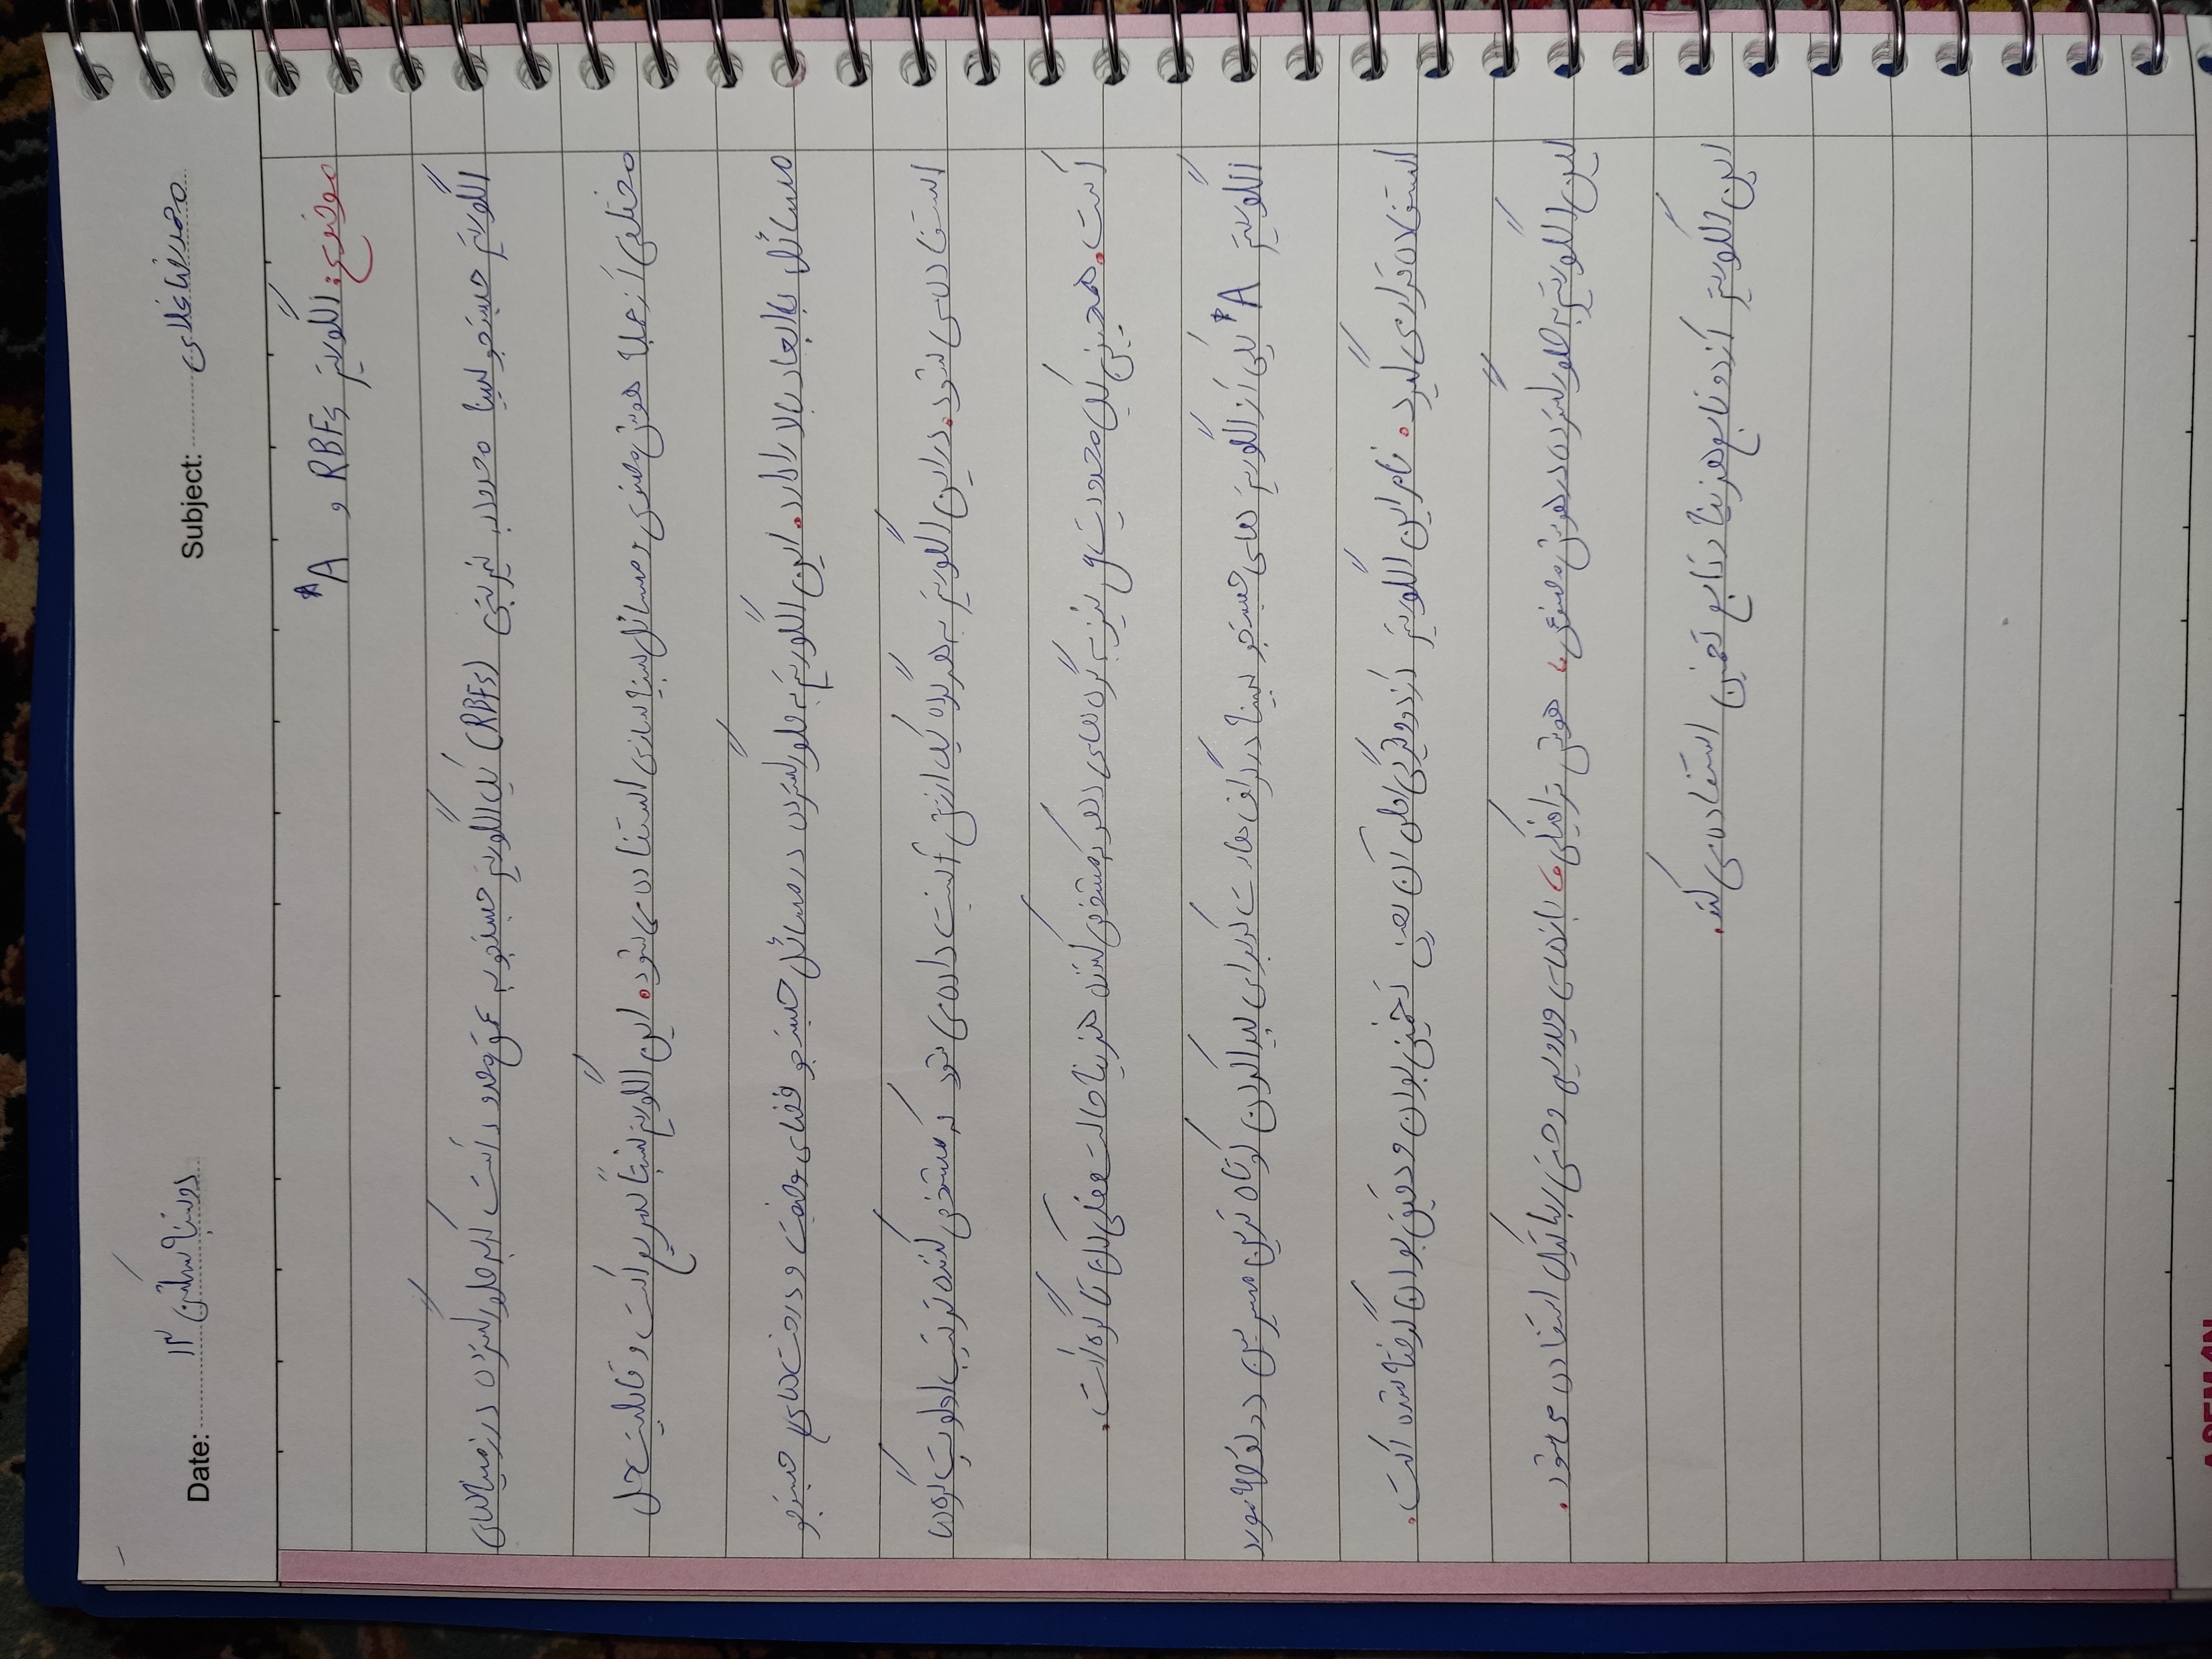 Subject: محمدرضا غلامی
Date: دوشنبه سکشن ۱۳
موضوع: الگوریتم RBFS و A*
الگوریتم جستجو بهینه محدود به نیم بتنی (RBFS) یک الگوریتم جستجو به عمق محدود است که به طور گسترده در زمینه‌های
مختلفی از جمله هوش مصنوعی و مسائل بهینه سازی استفاده می شود. این الگوریتم نسبتاً سریع است و قابلیت حل
مسائل با ابعاد بالا را دارد. این الگوریتم به طور گسترده در مسائل جستجو فضای وضعیت و درخت های جستجو
استفاده می شود. در این الگوریتم به هر گره یک ارزش f نسبت داده می شود که مشخص کننده ترتیب اولویت گره ها
است. همچنین یک محدودیت g نیز به گره های دهد که مشخص کننده هزینه حالت فعلی تا گره است.
الگوریتم A* یکی از الگوریتم های جستجو بهینه در گراف هاست که برای پیدا کردن کوتاه ترین مسیر بین دو نقطه مورد
استفاده قرار می گیرد. نام این الگوریتم از دو ویژگی اصلی آن یعنی تخمینی بودن و دقیق بودن گرفته شده است.
این الگوریتم به طور گسترده در هوش مصنوعی، هوش ترافیکی، بازی های ویدویی و حتی رباتیک استفاده می شود.
این الگوریتم از دو تابع هزینه و تابع تخمین استفاده می کند.
ASEMAN